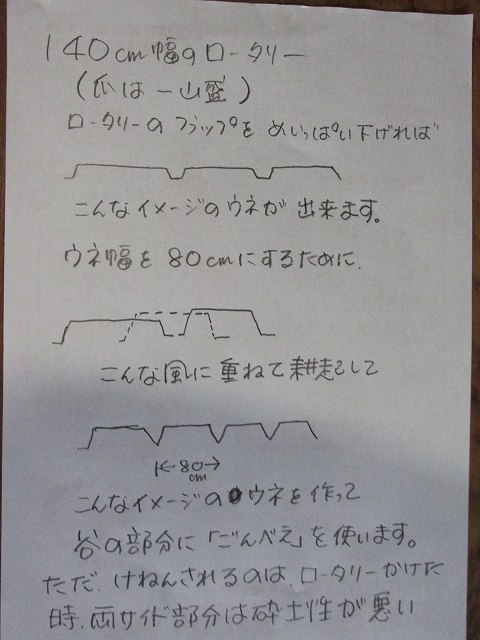 140cm幅のロータリー
(爪は一山盛)
ロータリーのフラップを めいっぱい下げれば
こんなイメージのウネが出来ます。
ウネ幅を80cmにするために、
こんな風に重ねて耕起こして
80
cm
こんなイメージのウネを作って
谷の部分に「ごんべえ」を使います。
ただ、けねんされるのは、ロータリーかけた
時、両サイド部分は砕土性が悪い